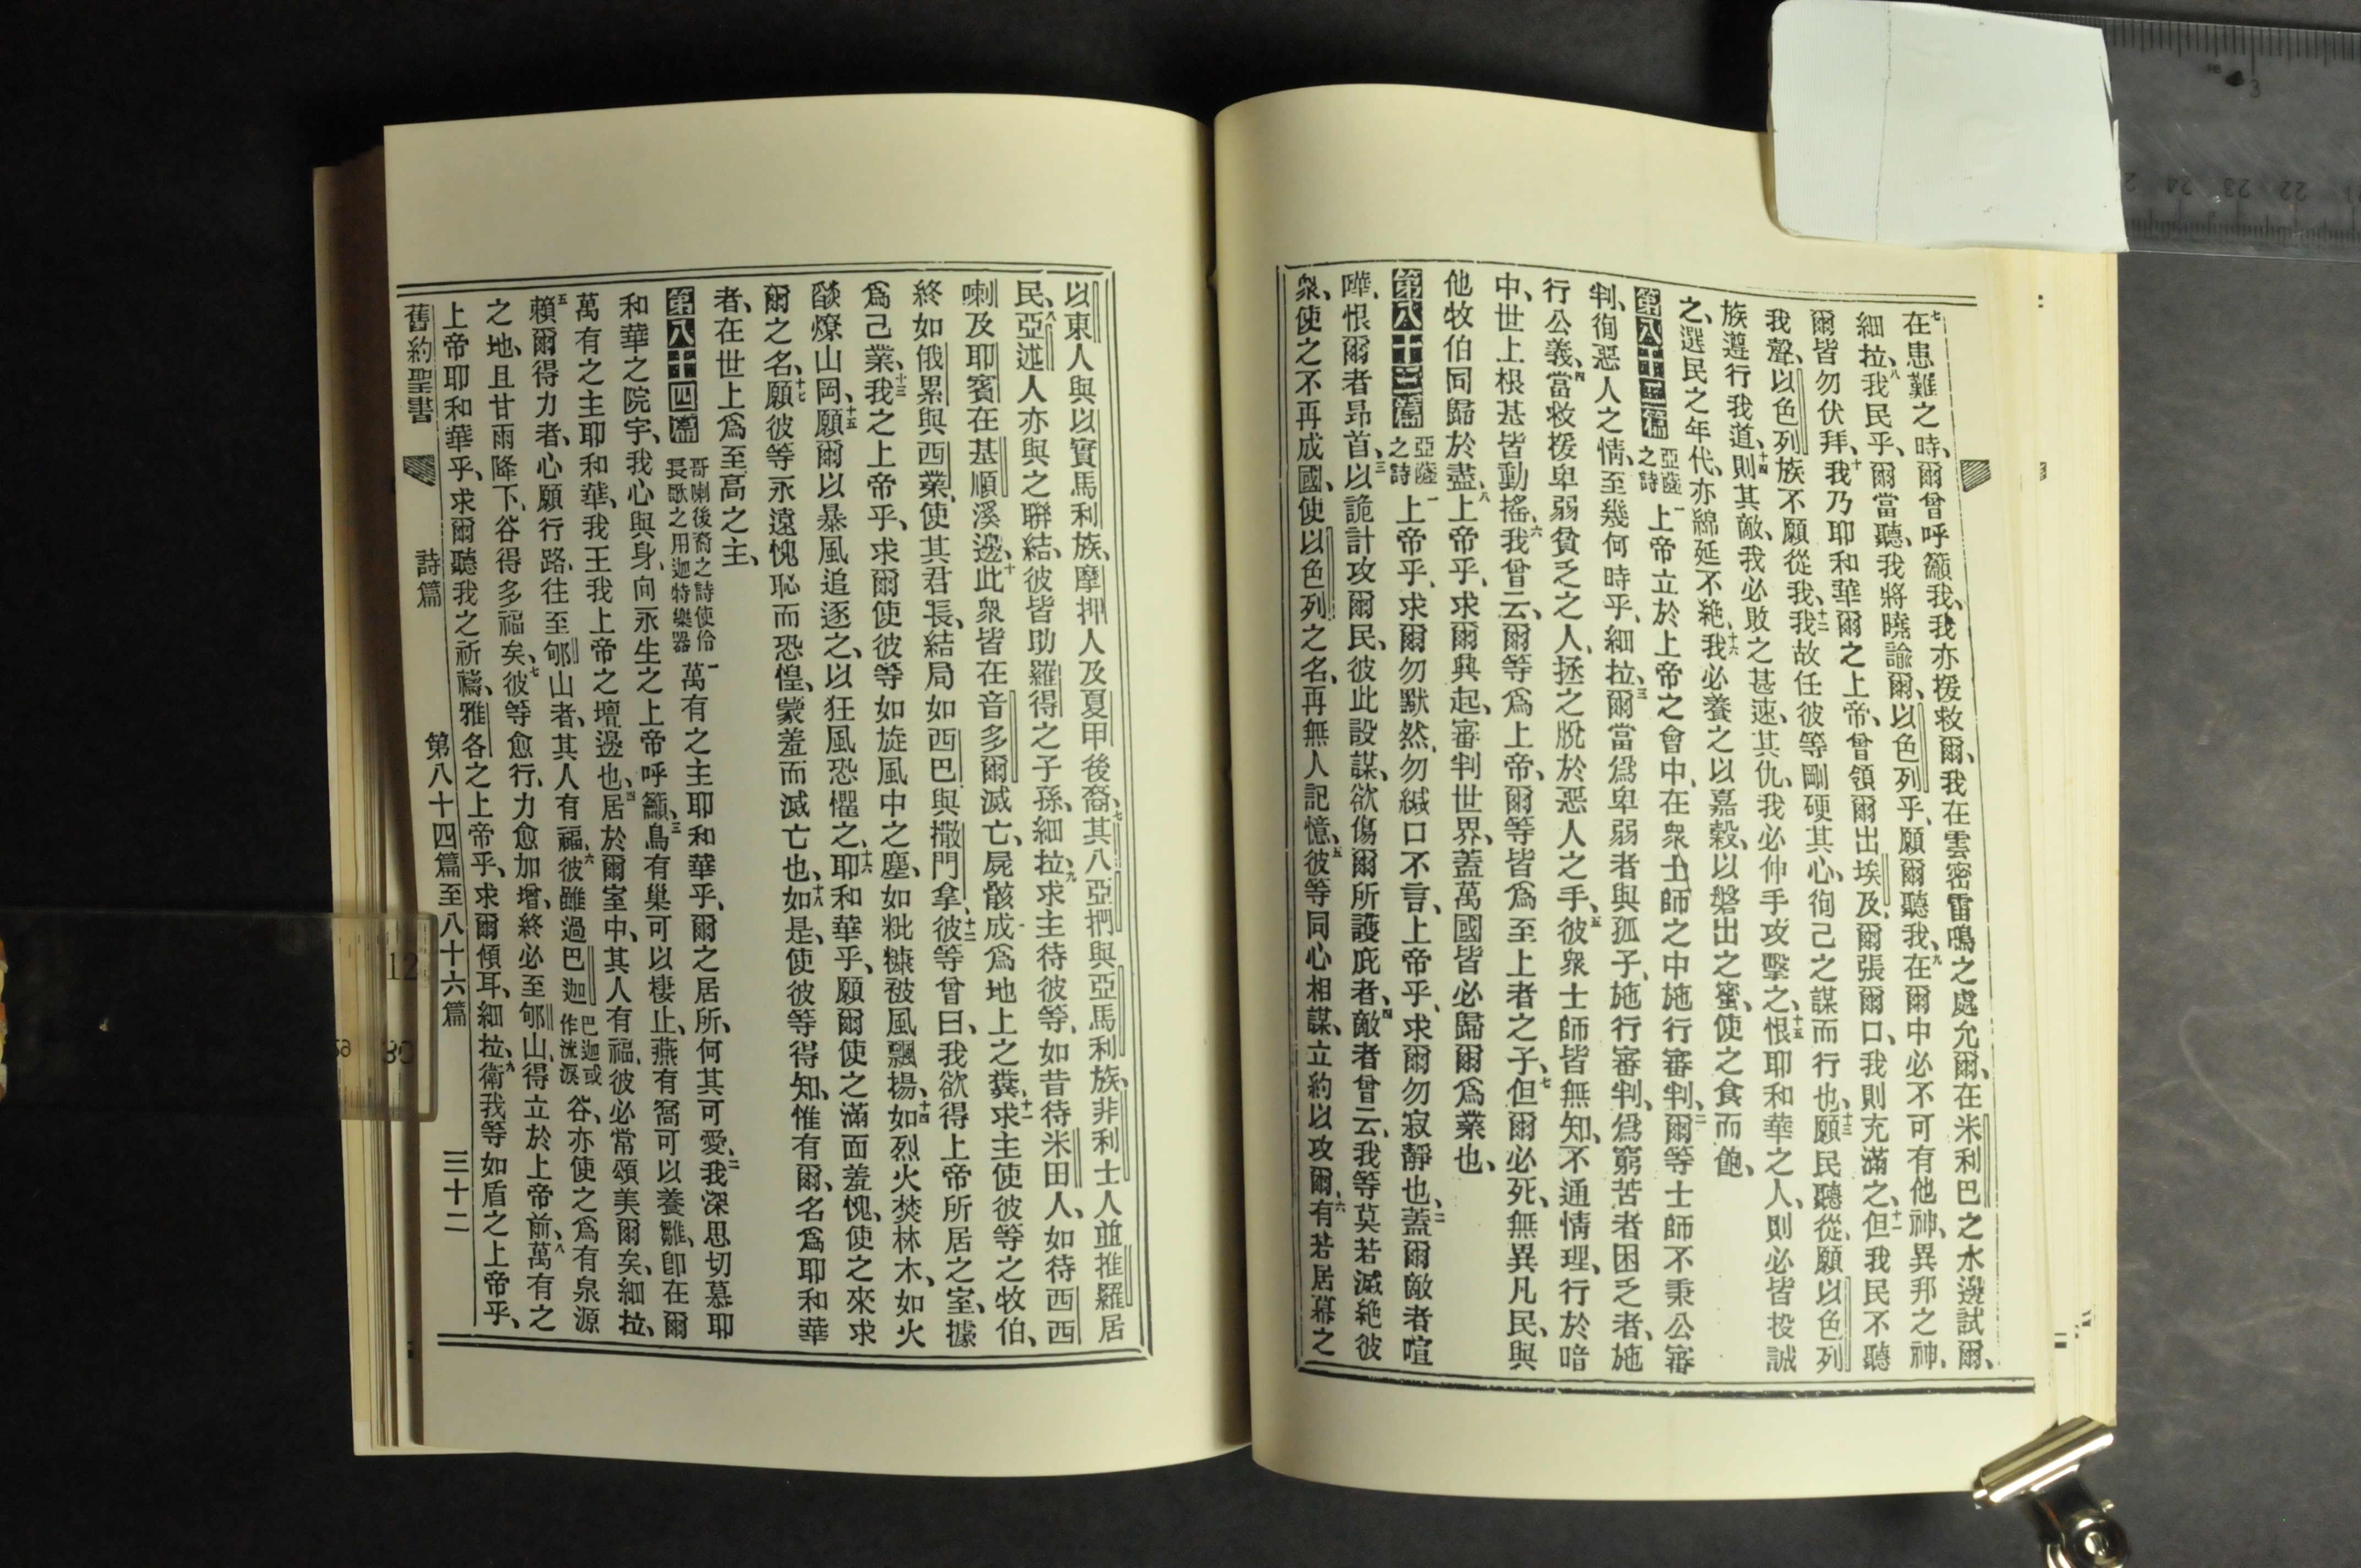 七在患難之時、爾曾呼籲我、我亦援救爾、我在雲密雷鳴之處允爾、在米利巴之水邊試爾、
細拉、八我民乎、爾當聽、我將曉諭爾、以色列乎、願爾聽我、九在爾中必不可有他神、異邦之神、
爾皆勿伏拜、十我乃耶和華爾之上帝、曾領爾出埃及、爾張爾口、我則充滿之、十一但我民不聽
我聲、以色列族不願從我、十二我故任彼等剛硬其心、徇己之謀而行也、十三願民聽從、願以色列
族遵行我道、十四則其敵、我必敗之甚速、其仇、我必伸手攻擊之、十五恨耶和華之人、則必皆投誠
之、選民之年代、亦綿延不絶、十六我必養之以嘉穀、以磐出之蜜、使之食而飽、
第八十二篇 亞薩之詩 一上帝立於上帝之會中、在衆士師之中施行審判、二爾等士師不秉公審
判、徇惡人之情、至幾何時乎、細拉、三爾當爲卑弱者與孤子、施行審判、爲窮苦者困乏者、施
行公義、四當救援卑弱貧乏之人、拯之脫於惡人之手、五彼衆士師皆無知、不通情理、行於暗
中、世上根基皆動搖、六我曾云、爾等爲上帝、爾等皆爲至上者之子、七但爾必死、無異凡民、與
他牧伯同歸於盡、八上帝乎、求爾興起、審判世界、蓋萬國皆必歸爾爲業也、
第八十三篇 亞薩之詩 一上帝乎、求爾勿默然、勿緘口不言、上帝乎、求爾勿寂靜也、二蓋爾敵者喧
嘩、恨爾者昂首、三以詭計攻爾民、彼此設謀、欲傷爾所護庇者、四敵者曾云、我等莫若滅絶彼
衆、使之不再成國、使以色列之名、再無人記憶、五彼等同心相謀、立約以攻爾、六有若居幕之
以東人與以實馬利族、摩押人及夏甲後裔、七其八亞捫與亞馬利族、非利士人並推羅居
民、八亞述人亦與之聯結、彼皆助羅得之子孫、細拉、九求主待彼等、如昔待米田人、如待西西
喇及耶賓在基順溪邊、十此衆皆在音多爾滅亡、屍骸成爲地上之糞、十一求主使彼等之牧伯、
終如俄累與西業、使其君長、結局如西巴與撒門拿、十二彼等曾曰、我欲得上帝所居之室、據
爲己業、十三我之上帝乎、求爾使彼等如旋風中之塵、如粃糠被風飄揚、十四如烈火焚林木、如火
燄燎山岡、十五願爾以暴風追逐之、以狂風恐懼之、十六耶和華乎、願爾使之滿面羞愧、使之來求
爾之名、十七願彼等永遠愧恥而恐惶、蒙羞而滅亡也、十八如是、使彼等得知、惟有爾、名爲耶和華
者、在世上爲至高之主、
第八十四篇 哥喇後裔之詩使伶長歌之用迦特樂器 一萬有之主耶和華乎、爾之居所、何其可愛、二我深思切慕耶
和華之院宇、我心與身、向永生之上帝呼籲、三鳥有巢可以棲止、燕有窩可以養雛、卽在爾
萬有之主耶和華、我王我上帝之壇邊也、四居於爾室中、其人有福、彼必常頌美爾矣、細拉、
五賴爾得力者、心願行路、往至郇山者、其人有福、六彼雖過巴迦 巴迦或作流淚 谷、亦使之爲有泉源
之地、且甘雨降下、谷得多福矣、七彼等愈行、力愈加增、終必至郇山、得立於上帝前、八萬有之
上帝耶和華乎、求爾聽我之祈禱、雅各之上帝乎、求爾傾耳、細拉、九衛我等如盾之上帝乎、
舊約聖書 詩篇 第八十四篇至八十六篇 三十二